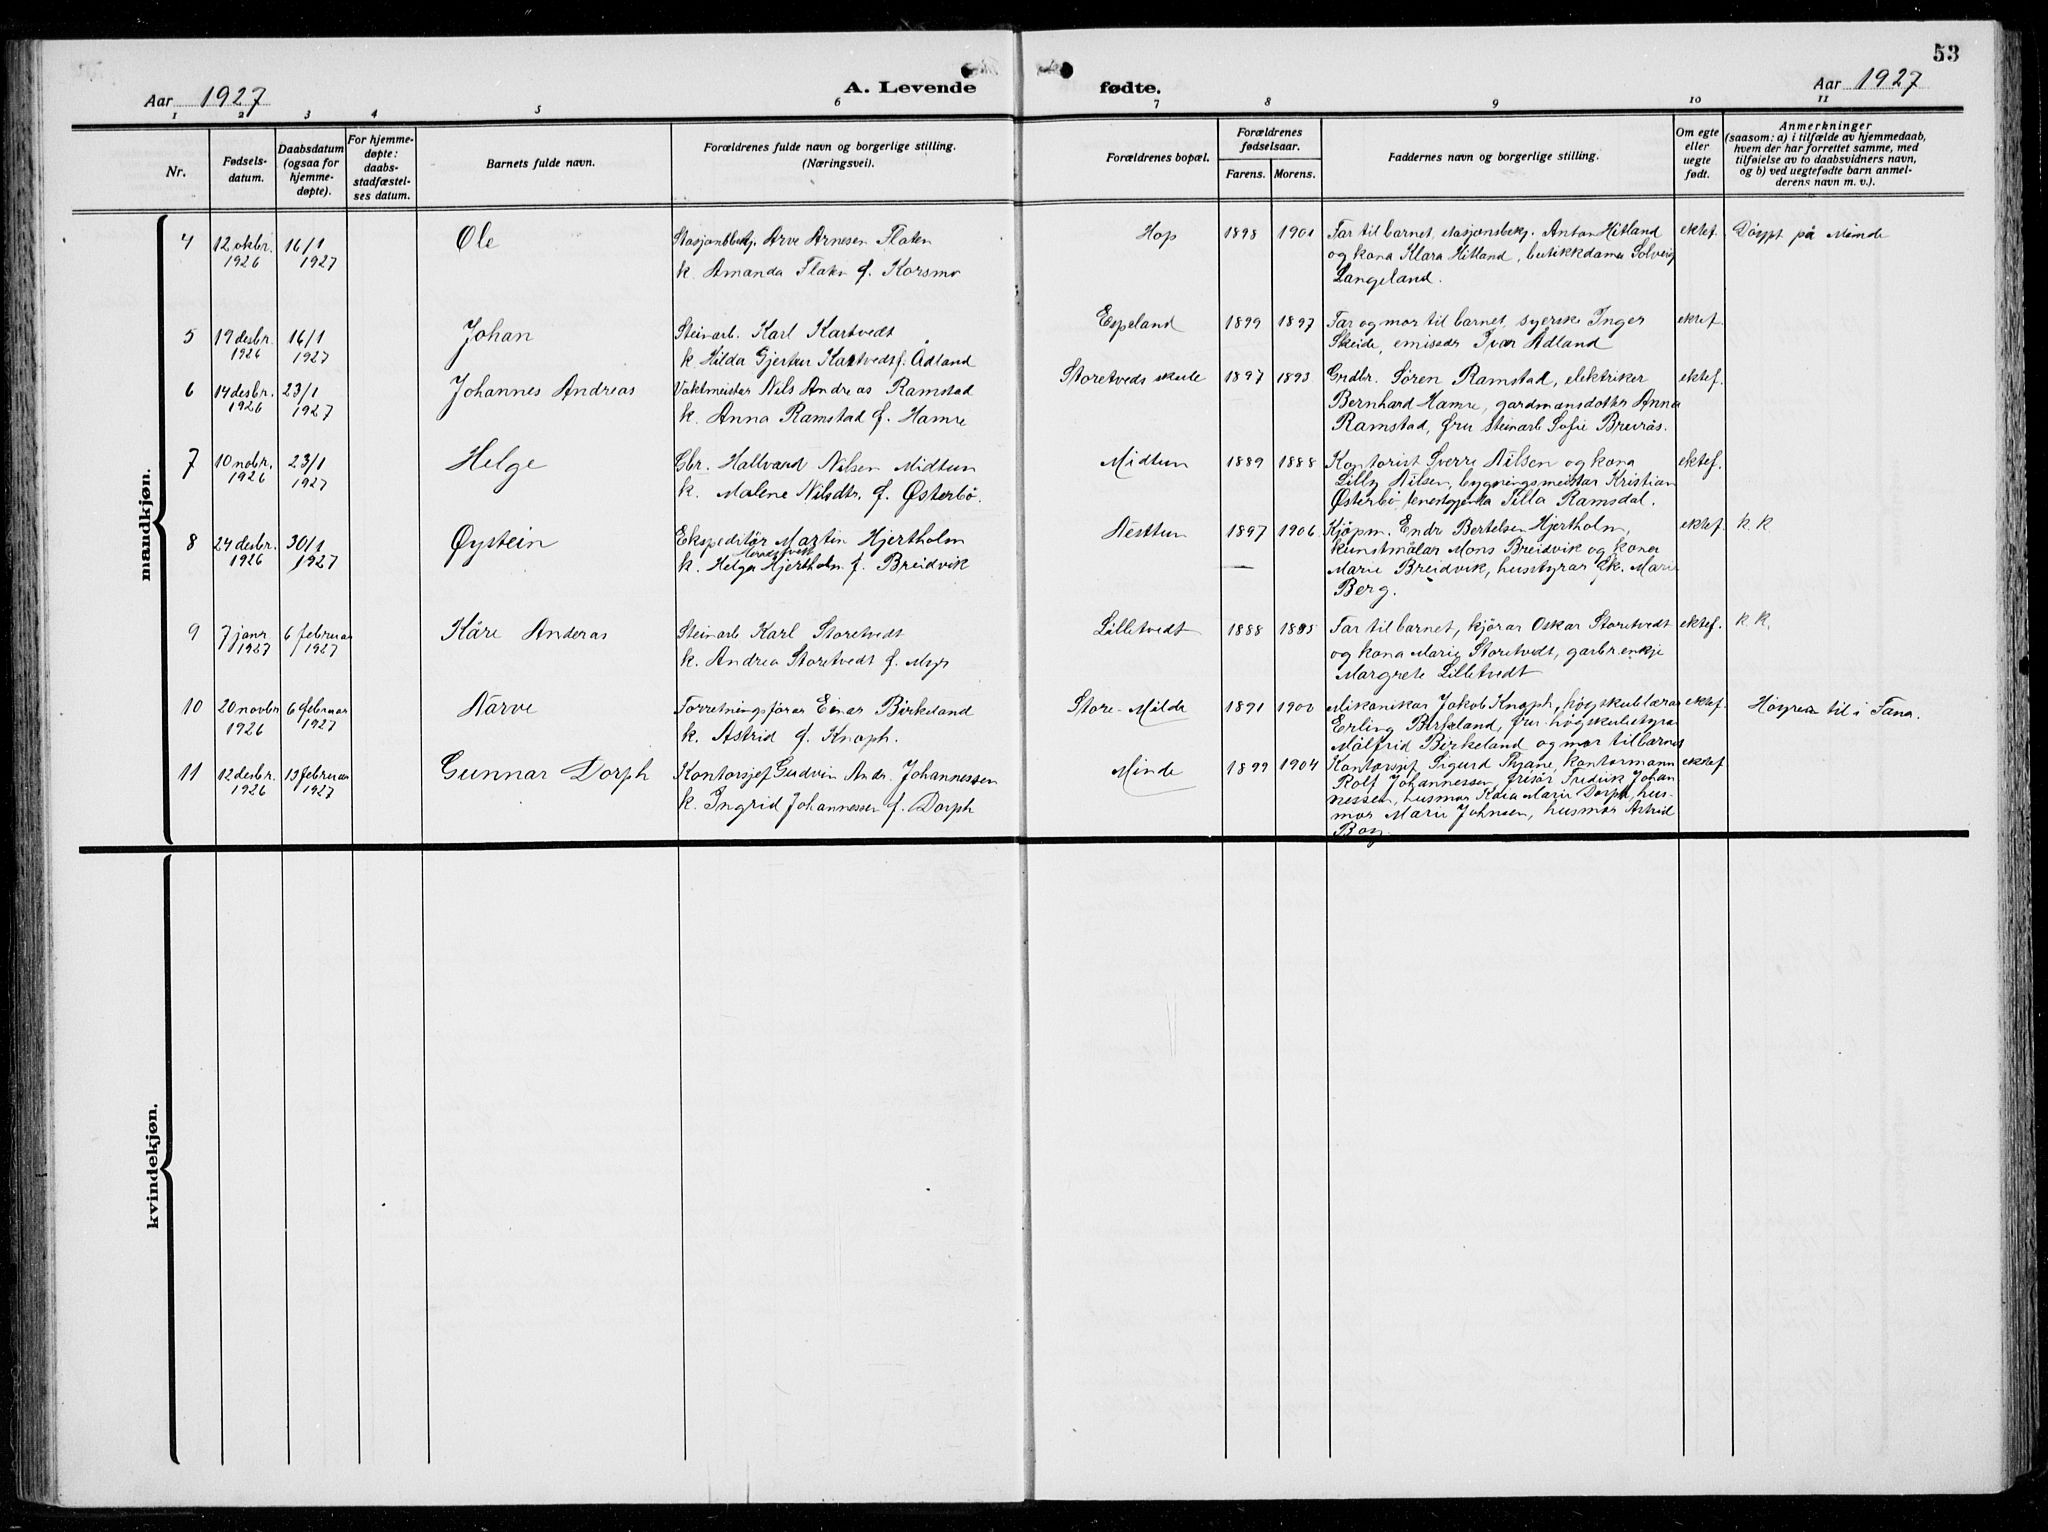 53
Aar 1927
A. Levende
fødte.
Aar 1927
1 2 3 4 5 6 7 8 9 10 11
Nr.
Fødsels-
datum.
Daabsdatum
(ogsaa for
hjemme-
døpte).
For hjemme-
døpte:
daabs-
stadfæstel-
ses datum.
Barnets fulde navn.
Forældrenes fulde navn og borgerlige stilling.
(Næringsvei).
Forældrenes bopæl.
Forældrenes
fødselsaar.
Farens. Morens.
Faddernes navn og borgerlige stilling.
Om egte
eller
uegte
født.
Anmerkninger
(saasom: a) i tilfælde av hjemmedaab,
hvem der har forrettet samme, med
tilføielse av to daabsvidners navn,
og b) ved uegtefødte barn anmel-
derens navn m. v.).
mandkjøn.
4 12 okbr. 16/1 Ole Stasjonsbetj. Arve Arnesen Flaten Hop 1898 1901 Far til barnet, stasjonsbetj. Anton Hitland ektef. Döypt på Minde
1926 1927 k. Amanda Flaten f. Korsmo og kona Klara Hitland, butikkdame Solveig
Langeland.
5 19 desbr. 16/1 Johan Steinarb. Karl Kartvedt Espeland 1899 1897 Far og mor til barnet, syerske Inger ektef.
1926 1927 k. Hilda Gjertur Kartvedt f. Ådland Skeide, emisær Ivar Ådland
6 14 desbr. 23/1 Johannes Andreas Vaktmeister Nils Andreas Ramstad Storetveds skule 1897 1893 Grdbr. Sören Ramstad, elektriker ektef.
1926 1927 k. Anna Ramstad f. Hamre Bernhard Hamre, gardmansdotter Anna
Ramstad, fru steinarb Sofie Breirås.
7 10 nobr. 23/1 Helge Gbr. Hallvard Nilsen Midtun Midtun 1889 1888 Kontorist Sverre Nilsen og kona ektef.
1926 1927 k. Malene Nilsdtr. f. Østerbö. Lilly Nilsen, bygningsmeistar Kristian
Østerbö, tenestgjenta Tilla Ramsdal.
8 24 desbr. 30/1 Øystein Ekspeditör Martin Hjertholm Nesttun 1897 1906 Kjöpm. Endre Bertelsen Hjertholm, ektef. k k
1926 1927 k. Helga Hjertholm f. Breidvik kunstmålar Mons Breidvik og kona
Marie Breidvik, husstyrar frk. Marie
Berg.
9 7 janr 6 februar Kåre Anderas Steinarb Karl Storetvedt Lilletvedt 1888 1895 Far til barnet, kjörar Oskar Storetvedt ektef. k. k.
1927 1927 k. Andrea Storetvedt f. Myr og kona Marie Storetvedt, garbr.enkje
Margrete Lilletvedt
10 20 novbr 6 februar Narve Forretningsförar Einar Birkeland Store-Milde 1891 1900 Mikanikar Jakob Knoph, högskulelærar ektef. Höyrer til i Fana.
1926 1927 k. Astrid f. Knoph. Erling Birkeland, fru högskulestyrar
Målfrid Birkeland og mor til barnet
11 12 desbr. 13 februar Gunnar Dorph Kontorsjef Gudvin Andr. Johannessen Minde 1899 1904 Kontorsjef Sigurd Thjane kontormann ektef
1926 1927 k. Ingrid Johannessen f. Dorph Rolf Johannessen, frisör Fredrik Johan
nessen, husmor Kaia Marie Dorph, hus-
mor Marie Johnsen, husmor Astrid
Boy.
kvindekjøn.